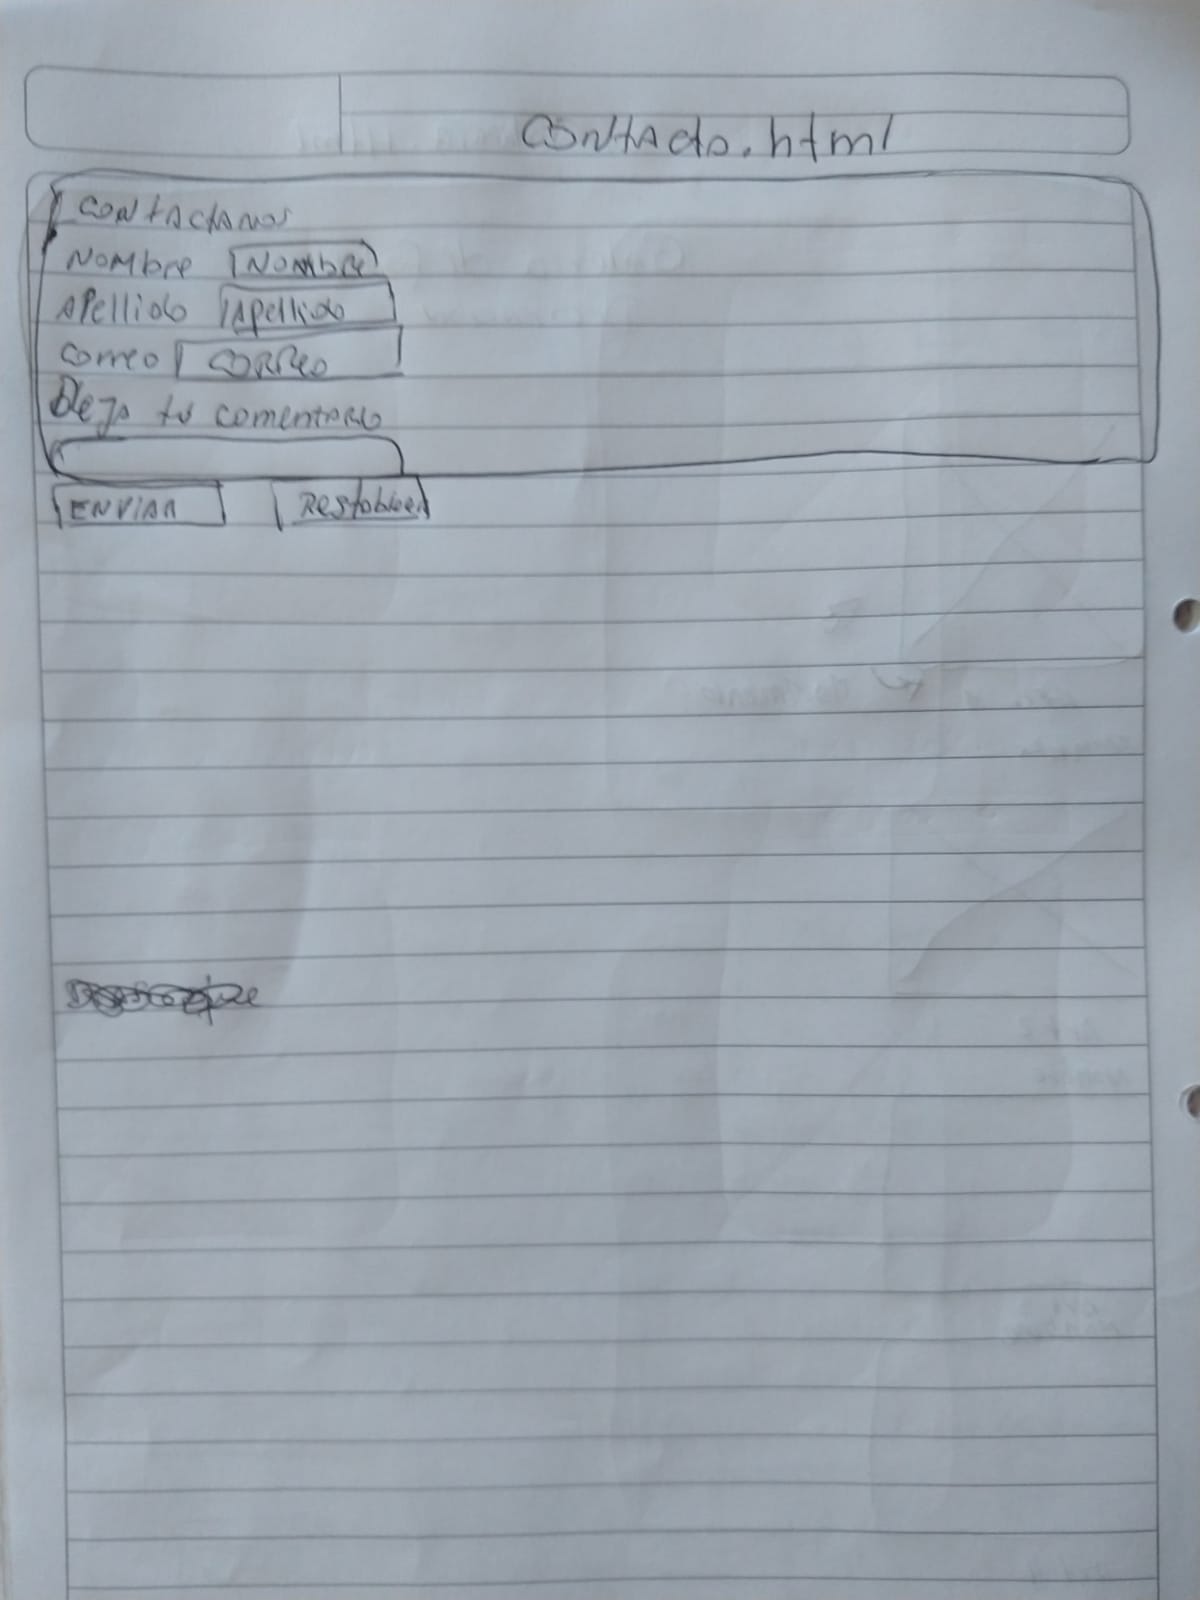 Contacto.html
Contactanos
Nombre Nombre
Apellido Apellido
Correo Correo
Deja tu comentario
Enviar Restablecer